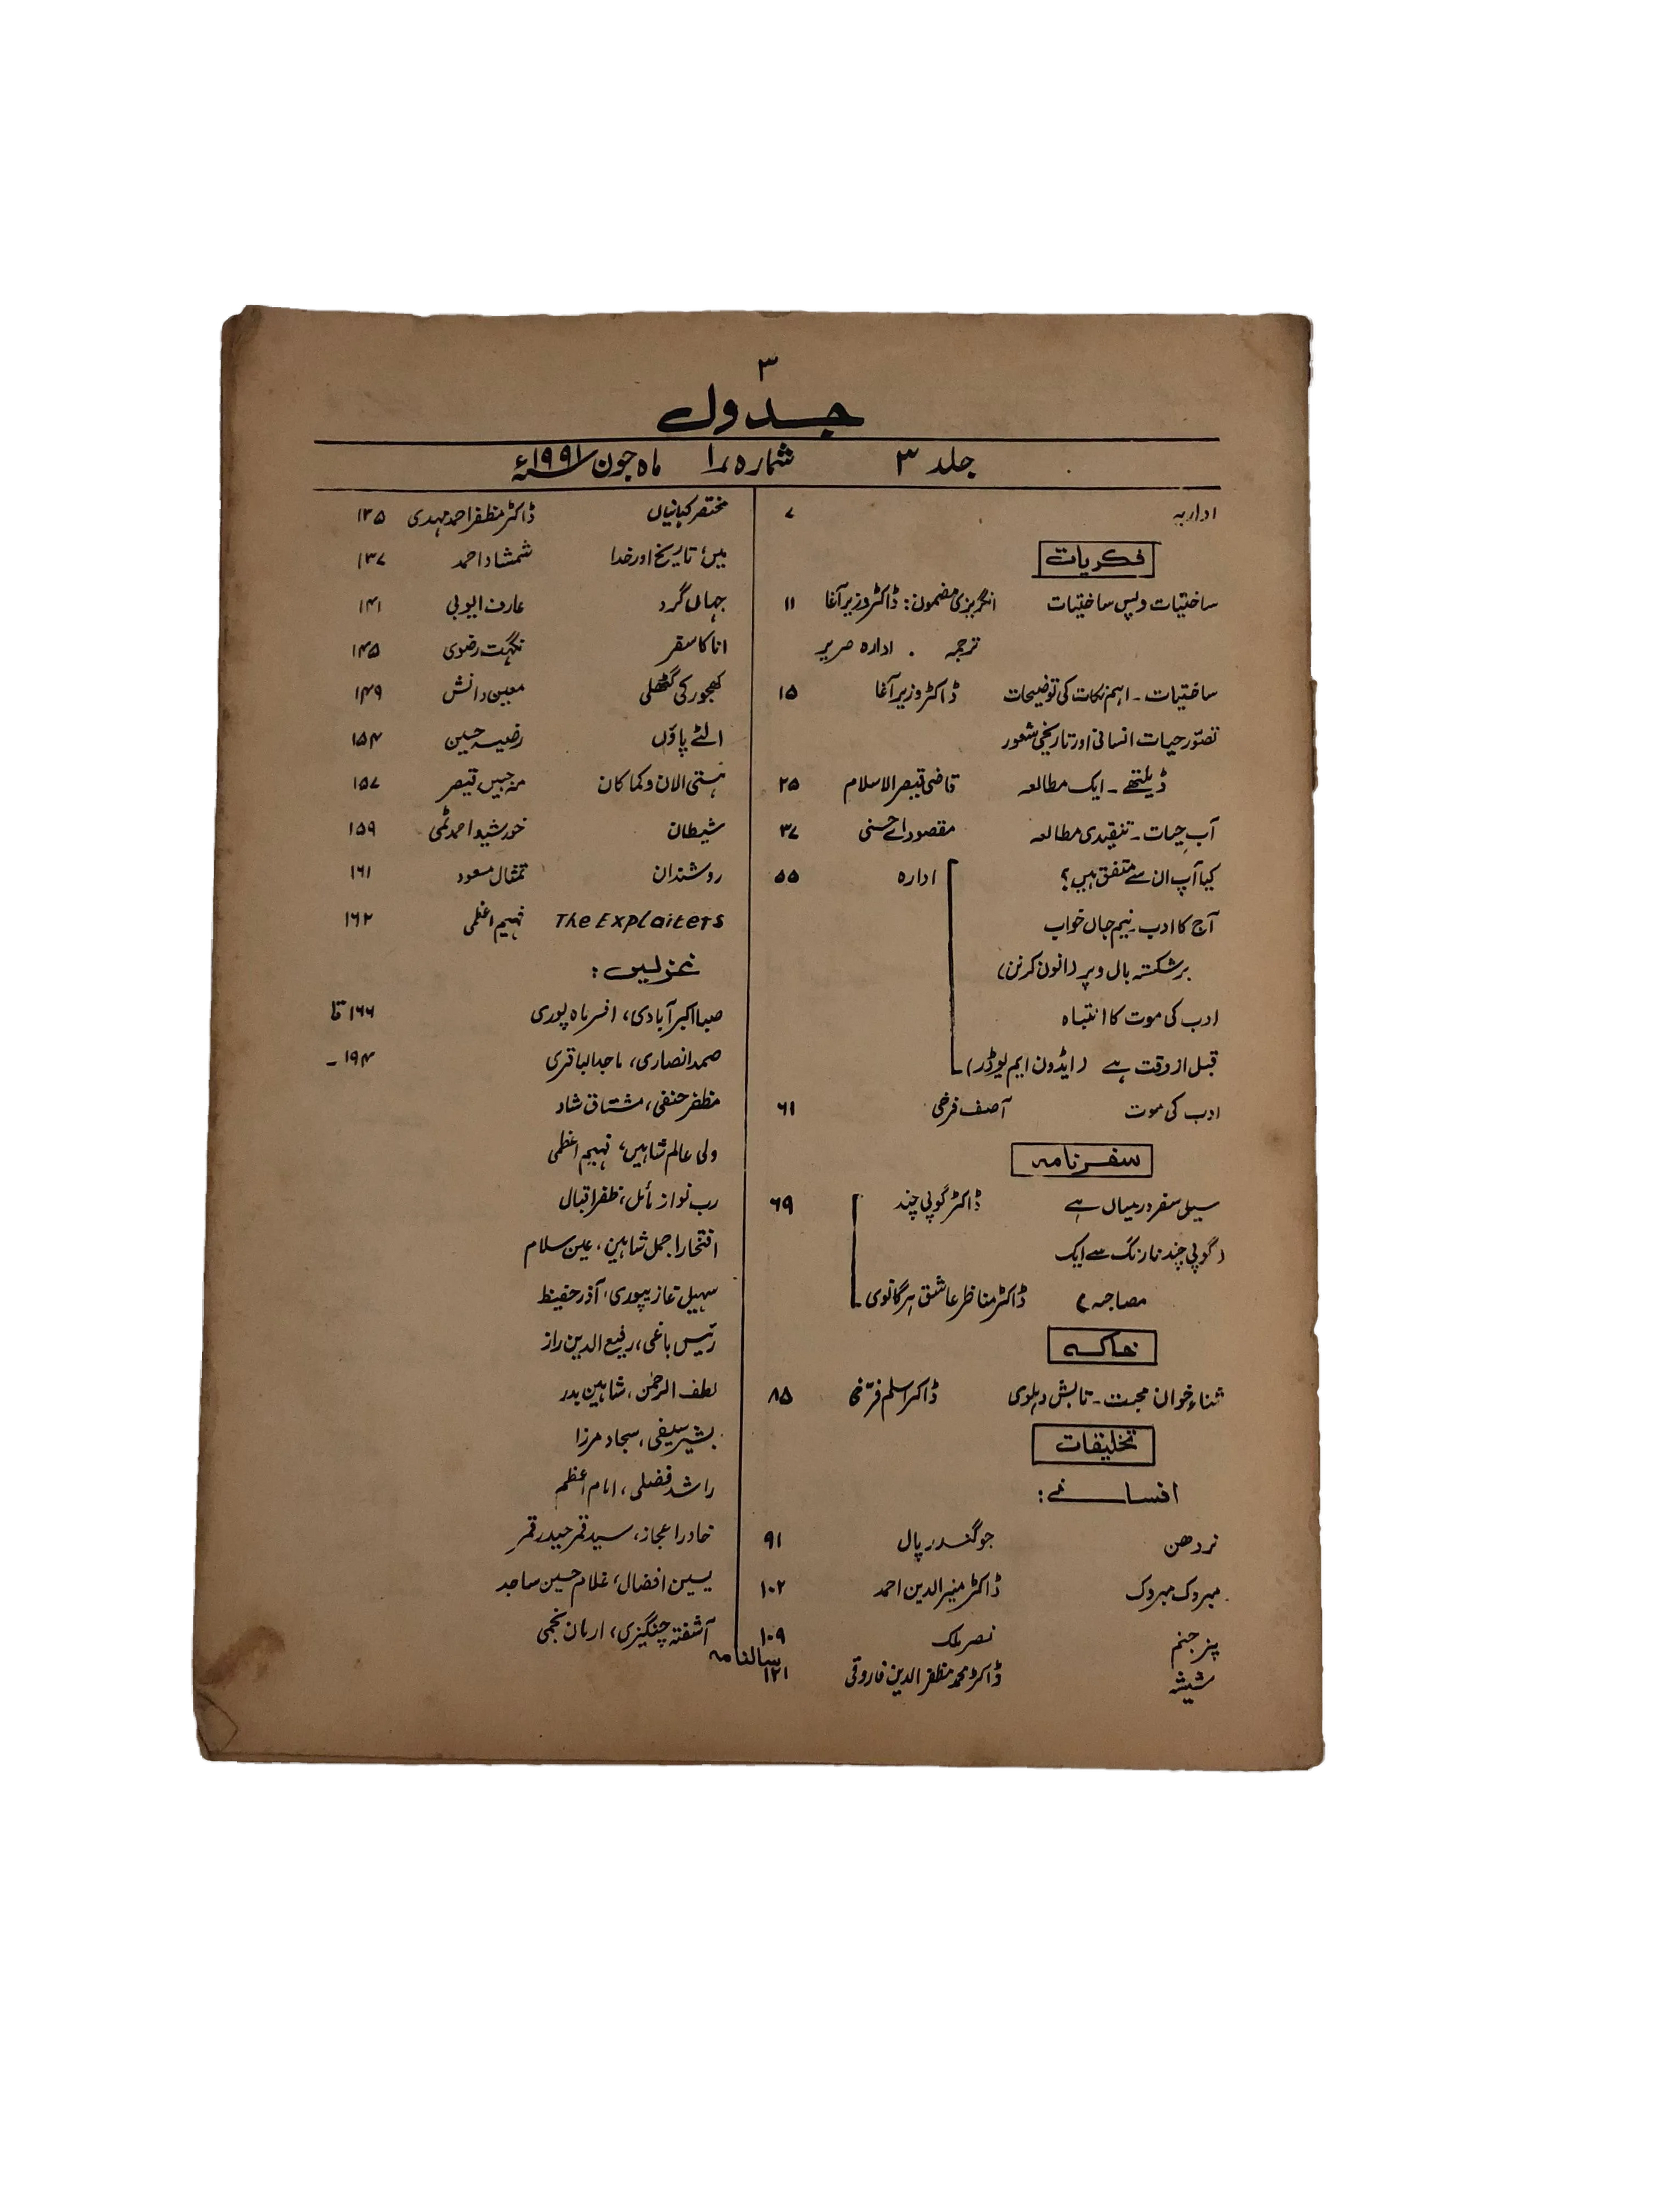 ۳
جدول
جلد ۳ شماره ۱ ماہ جون ۱۹۹۱ء
اداریہ ۷
فکریات
ساختیات و پس ساختیات انگریزی مضمون: ڈاکٹر وزیر آغا ۱۱
ترجمہ . ادارہ صریر
ساختیات ـ اہم نکات کی توضیحات ڈاکٹر وزیر آغا ۱۵
تصوّر حیات انسانی اور تاریخی شعور
ڈیلتھے ـ ایک مطالعہ قاضی قیصر الاسلام ۲۵
آبِ حیات ـ تنقیدی مطالعہ مقصود اے حسنی ۳۷
کیا آپ ان سے متفق ہیں؟ ادارہ ۵۵
آج کا ادب ـ نیم جاں خواب
بر شکستہ بال و پر (انون کرنن)
ادب کی موت کا انتباہ
قبل از وقت ہے (ایڈون ایم یوڈر)
ادب کی موت آصف فرخی ۶۱
سفرنامہ
سیل سفر درمیاں ہے ڈاکٹر گوپی چند ۶۹
(گوپی چند نارنگ سے ایک
مصاحبہ) ڈاکٹر مناظر عاشق ہرگانوی
خاکہ
ثناء خوان محبت ـ تابش دہلوی ڈاکٹر اسلم فرّخی ۸۵
تخلیقات
افسانے:
نردھن جوگندر پال ۹۱
مبروک مبروک ڈاکٹر منیر الدین احمد ۱۰۲
پنر جنم نصر ملک ۱۰۹
شیشہ ڈاکٹر محمد مظفر الدین فاروقی ۱۲۱
مختصر کہانیاں ڈاکٹر مظفر احمد مہدی ۱۳۵
میں، تاریخ اور خدا شمشاد احمد ۱۳۷
جہاں گرد عارف ایوبی ۱۴۱
انا کا سفر نگہت رضوی ۱۴۵
کھجور کی گٹھلی معین دانش ۱۴۹
الٹے پاؤں رضیہ حسین ۱۵۴
ہستی الان و کما کان مہ جبیں قیصر ۱۵۷
شیطان خورشید احمد ۱۵۹
روشندان تمثال مسعود ۱۶۱
The Explaiters فہیم اعظمی ۱۶۲
غزلیں:
صبا اکبرآبادی، افسر ماہ پوری ۱۶۶ تا
صمد انصاری، ماجد الباقری ۱۹۴ ـ
مظفر حنفی، مشتاق شاد
ولی عالم شاہین، فہیم اعظمی
رب نواز مائل، ظفر اقبال
افتخار اجمل شاہین، عین سلام
سہیل غازیپوری، آذر حفیظ
رئیس باغی، رفیع الدین راز
لطف الرحمٰن، شاہین بدر
بشیر سیفی، سجاد مرزا
راشد فضلی، امام اعظم
خاور اعجاز، سید قمر حیدر قمر
یسین افضال، غلام حسین ساجد
آشفتہ چنگیزی، ارمان نجمی
سالنامہ